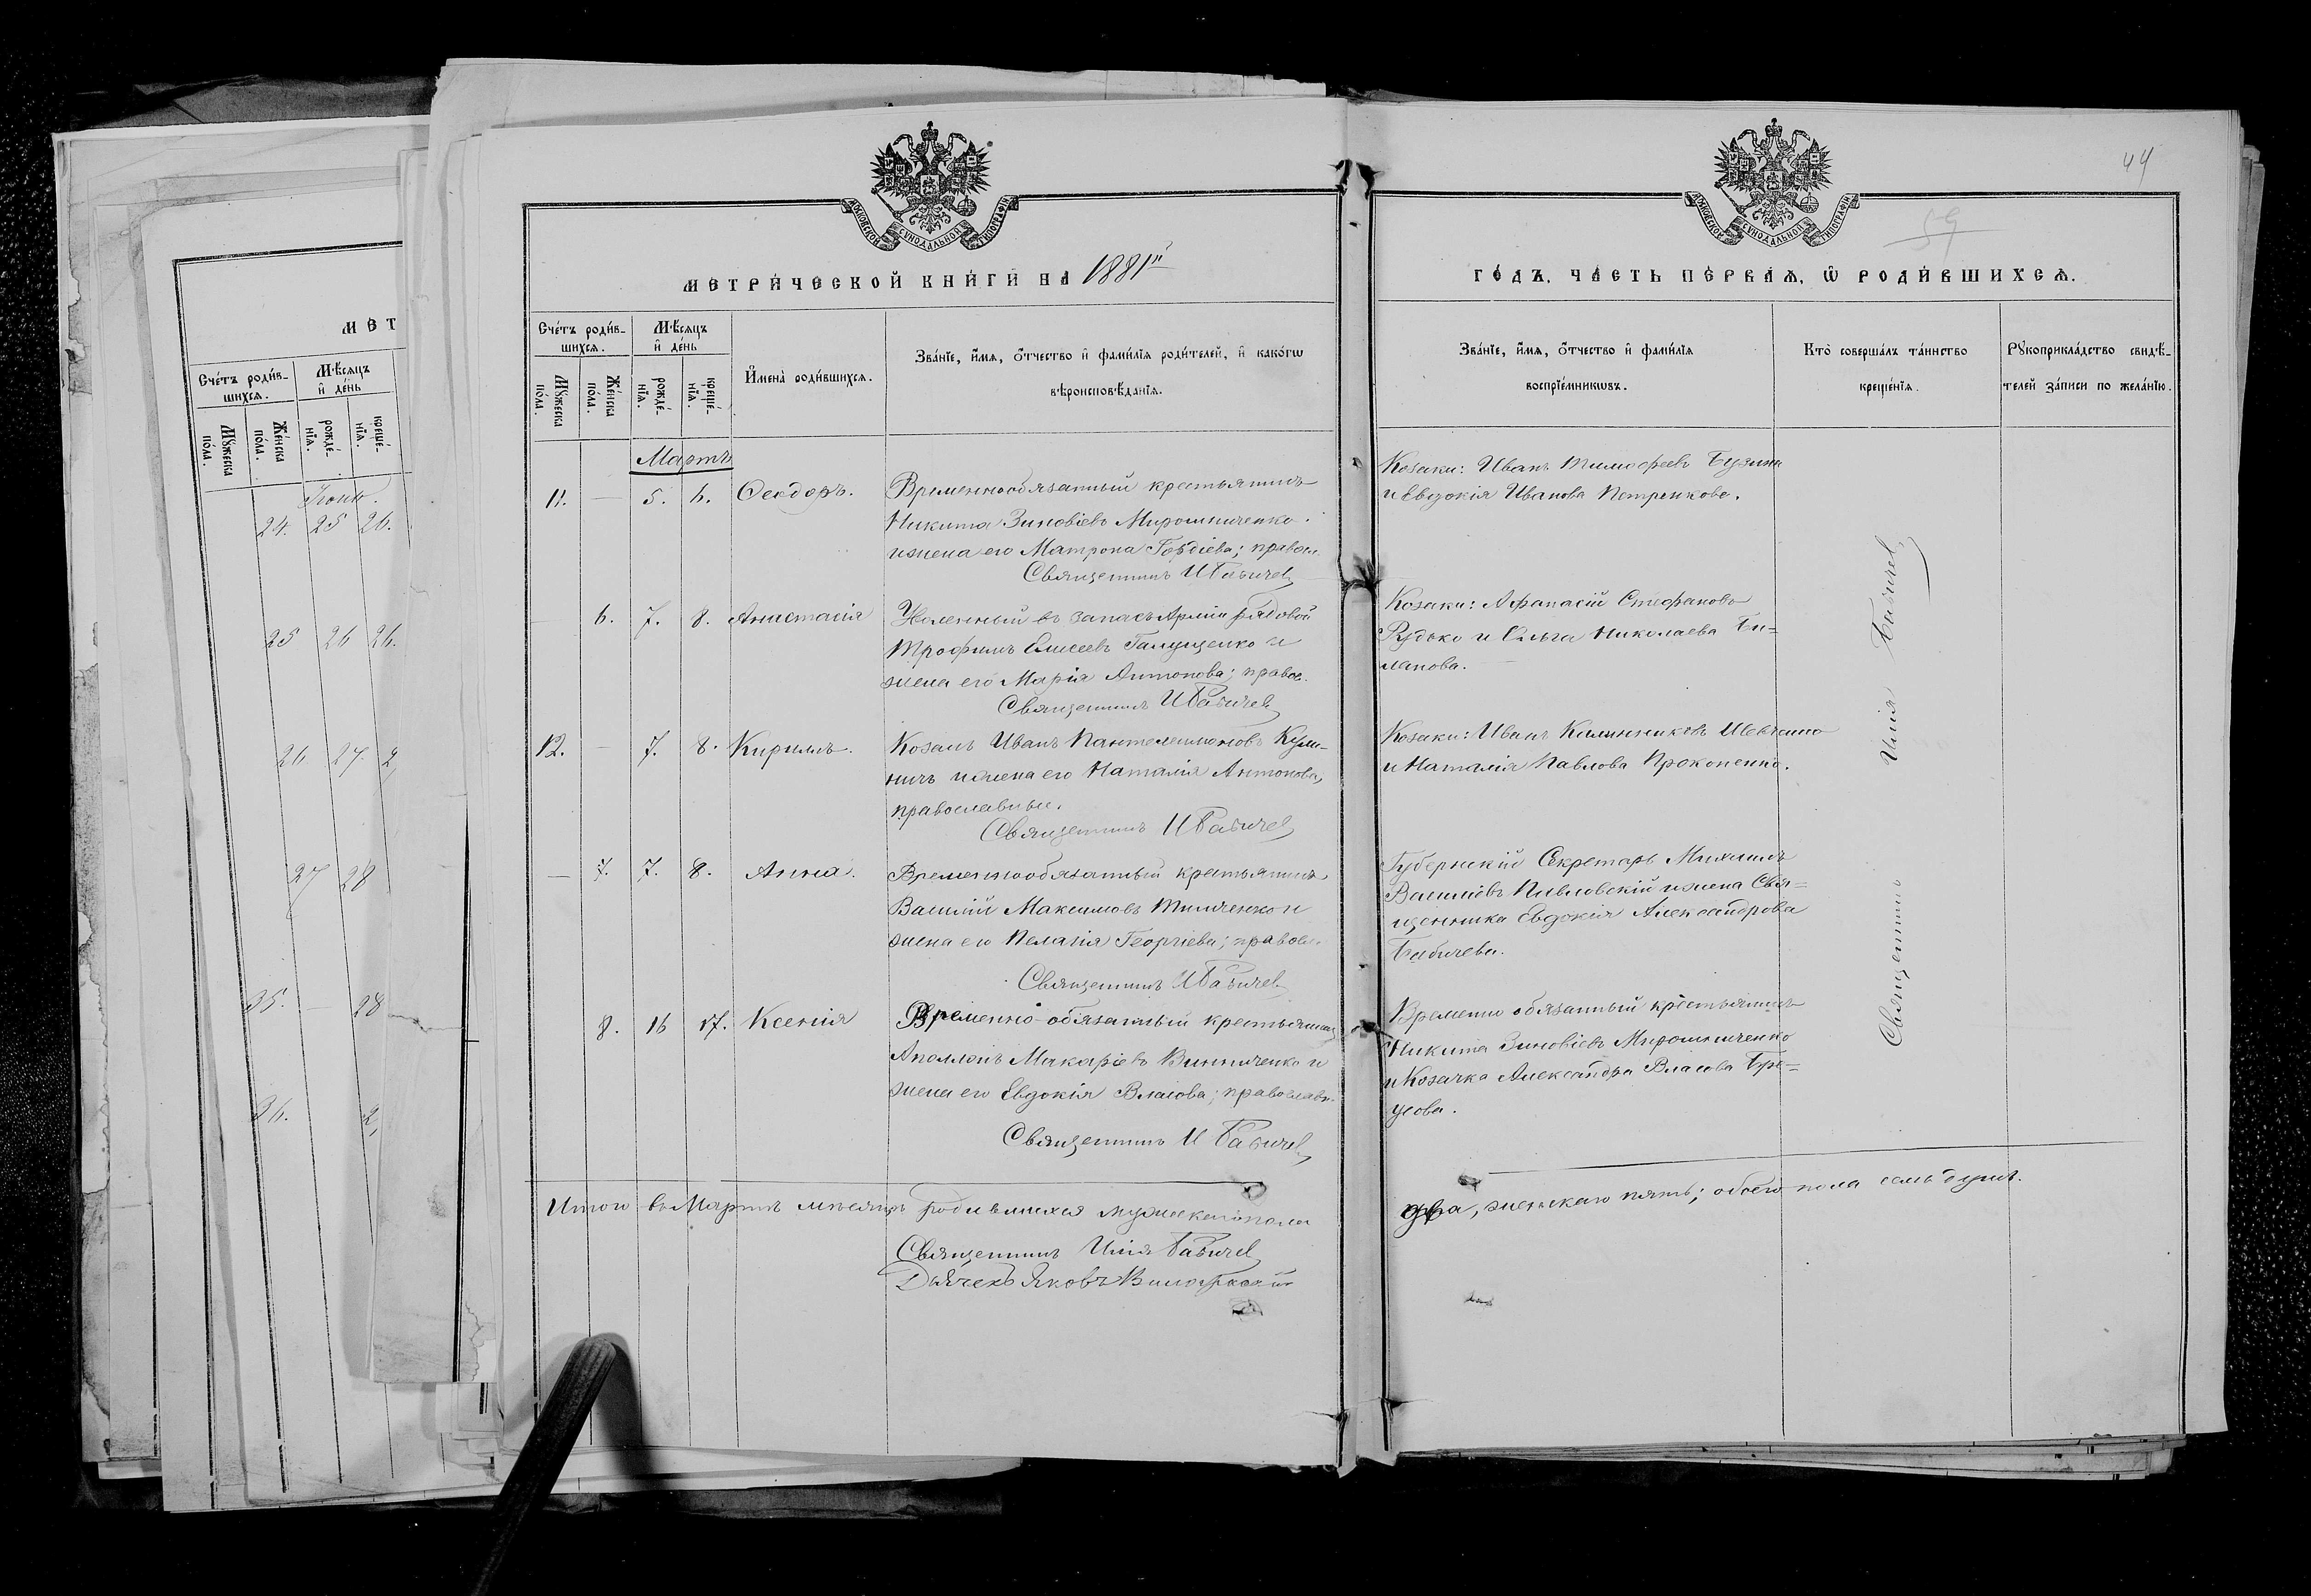 44
59
МОСКОВСКОЙ СУНОДАЛЬНОЙ ТИПОГРАФІИ
МОСКОВСКОЙ СУНОДАЛЬНОЙ ТИПОГРАФІИ
МЕТРИ́ЧЕСКОЙ КНИ́ГИ НА 1881й
ГО́ДЪ, ЧА́СТЬ ПЕ́РВАѦ, Ѡ҆ РОДИ́ВШИХСѦ.
Сче́тъ роди́в-
шихсѧ.
Мꙋ́жеска по́ла.
Же́нска по́ла.
Мѣ́сѧцъ
и҆ де́нь
рожде́-нїѧ.
креще́-нїѧ.
И҆мена̀ роди́вшихсѧ.
Зва́нїе, и҆́мѧ, ѻ҆́тчество и҆ фами́лїѧ роди́телей, и҆ како́гѡ
вѣроисповѣ́данїѧ.
Зва́нїе, и҆́мѧ, ѻ҆́тчество и҆ фами́лїѧ
воспрїе́мникѡвъ.
Кто̀ соверша́лъ та́инство
креще́нїѧ.
Рꙋкоприкла́дство свидѣ́-
телей за́писи по жела́нїю.
Мартъ
11. — 5. 6. Ѳеодоръ.
Временнообязанный крестьянинъ
Никита Зиновіевъ Мирошниченко
и жена его Матрона Гордіева; правосл.
Священникъ И Бабичев
Козаки: Иванъ Тимофеевъ Бузина
и Евдокія Иванова Петренкова.
— 6. 7. 8. Анастасія
Уволенный въ запасъ Арміи рядовой
Трофимъ Елисеевъ Галущенко и
жена его Марія Антонова; правос.
Священникъ И Бабичев
Козаки: Афанасій Стефановъ
Рудько и Ольга Николаева Би=
ланова.
12. — 7. 8. Кириллъ.
Козакъ Иванъ Пантелеимоновъ Кули-
ничъ и жена его Наталія Антонова,
православные.
Священникъ И Бабичев
Козаки: Иванъ Калинниковъ Шевченко
и Наталія Павлова Прокопенко.
— 7. 7. 8. Анна.
Временнообязанный крестьянинъ
Василій Максимовъ Тимченко и
жена его Пелагія Георгіева; правосл.
Священникъ И Бабичев
Губернскій Секретарь Михаилъ
Василіевъ Павловскій и жена Свя=
щенника Евдокія Александрова
Бабичева.
8. 16 17. Ксенія
Временно-обязанный крестьянинъ
Аполлонъ Макаріевъ Винниченко и
жена его Евдокія Власова; православн.
Священникъ И Бабичев
Временно обязанный крестьянинъ
Никита Зиновіевъ Мирошниченко
и Козачка Александра Власова
усова.
Священникъ Илія Бабичев
Итого въ Мартѣ мѣсяцѣ родившихся мужескаго пола
два, женскаго пять; обоего пола семь душъ.
Священникъ Илія Бабичев
Дьячекъ Яковъ
МЕТ
Сче́тъ роди́в-
шихсѧ.
Мѣ́сѧцъ
и҆ де́нь
Мꙋ́жеска по́ла.
Же́нска по́ла.
рожде́-нїѧ.
креще́-нїѧ.
24. 25 26.
25 26 26.
26 27 2
27 28
35. — 28
36. 2